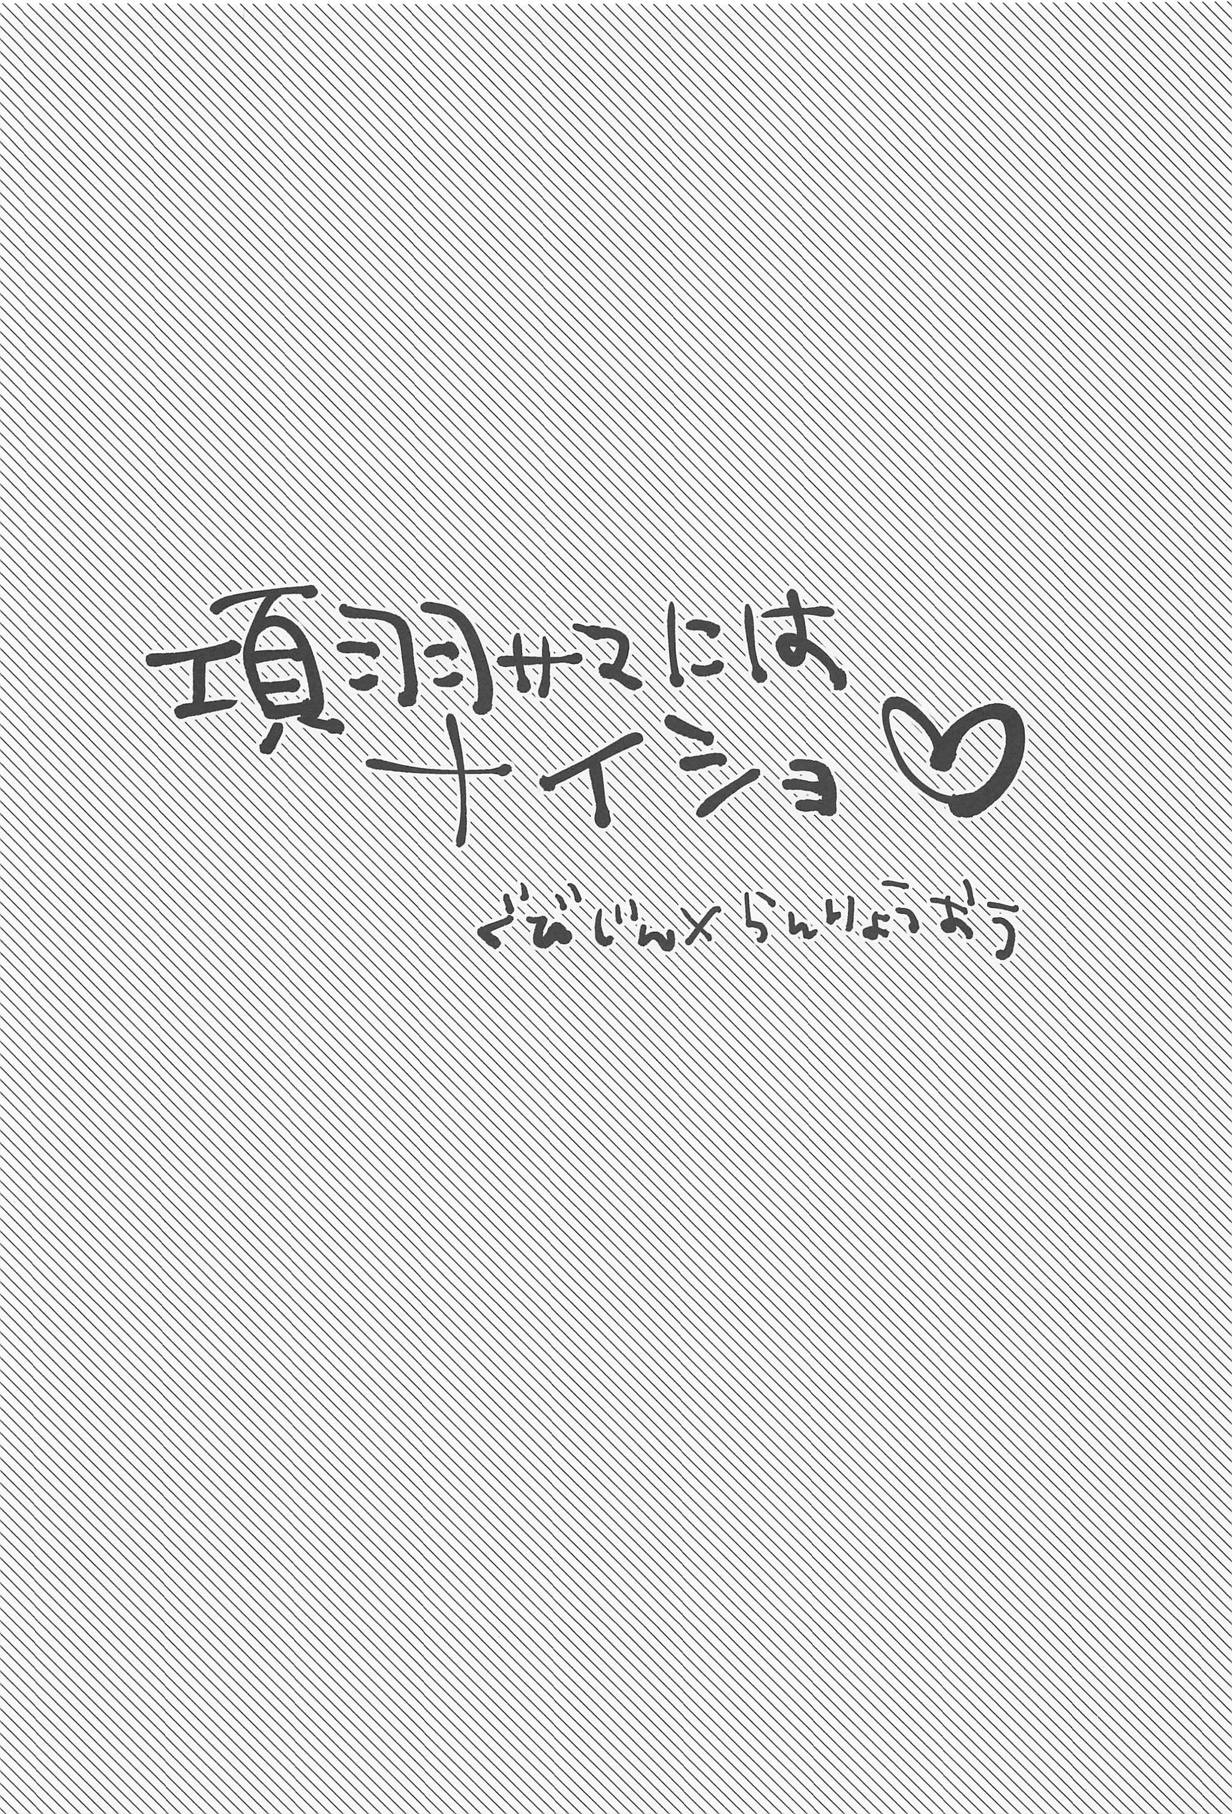 項羽サマには
ナイショ♡
ぐびじん×らんりょうおう